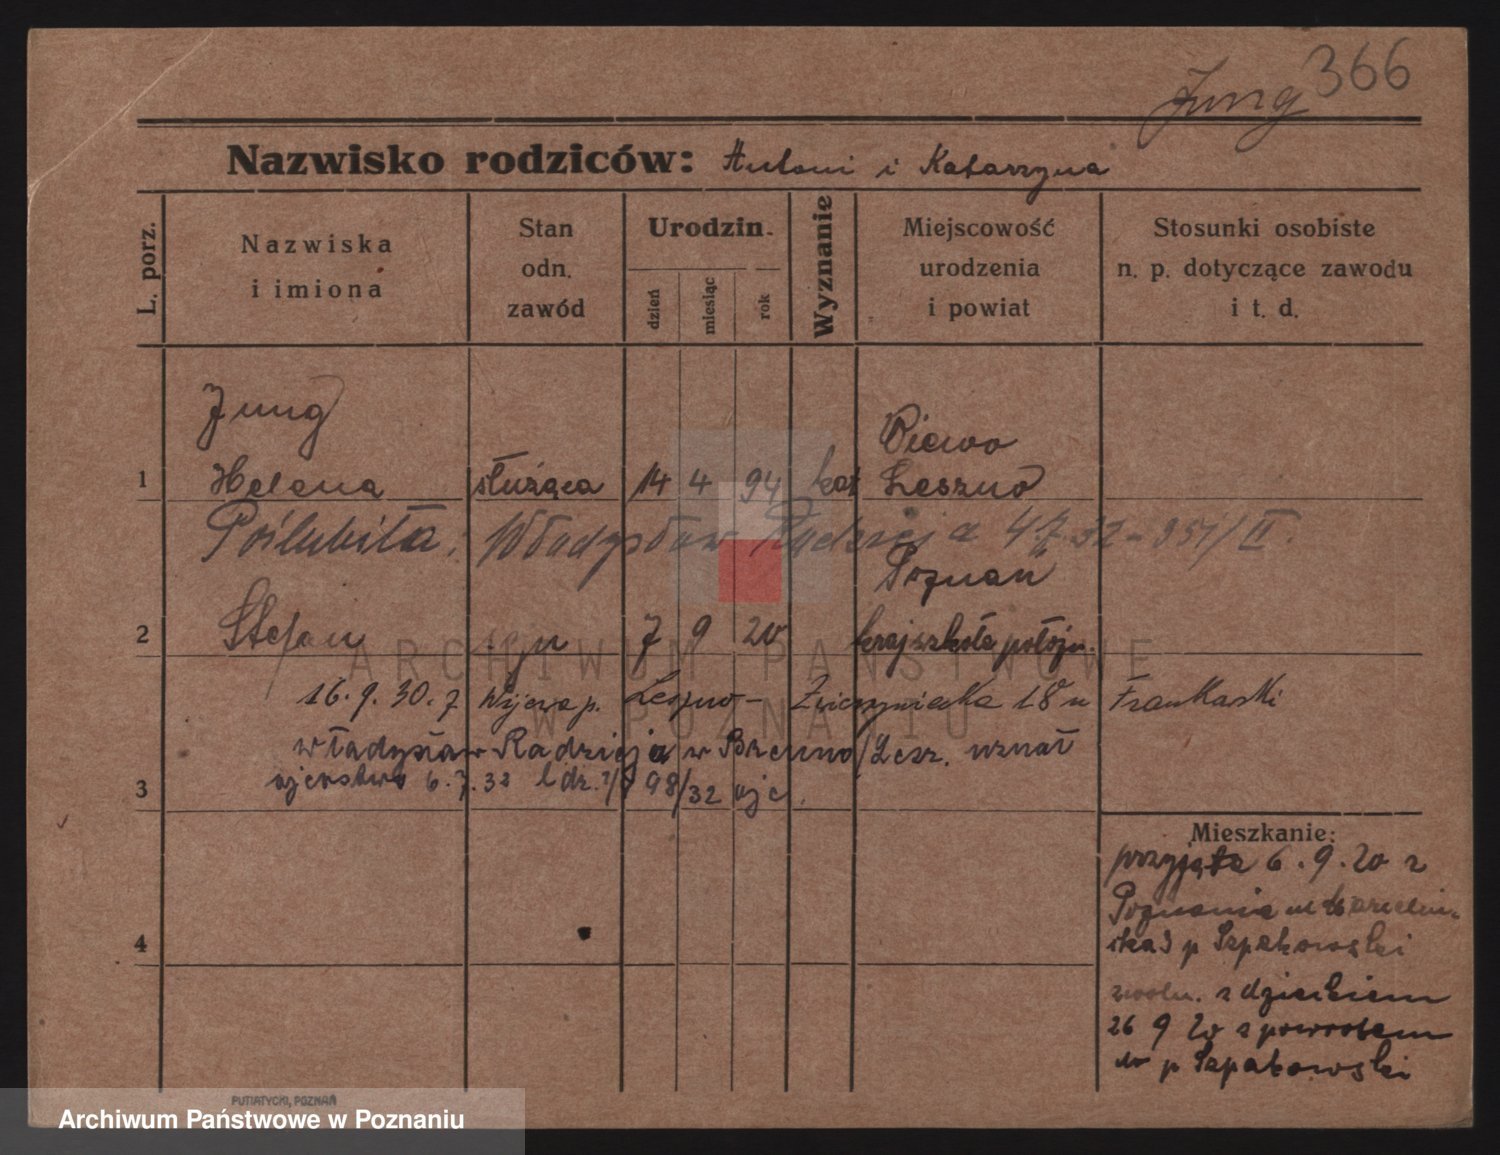 366
Jung
Nazwisko rodziców: Antoni i Katarzyna
L. porz.
Nazwiska
i imiona
Stan
odn.
zawód
Urodzin.
dzień
miesiąc
rok
Wyznanie
Miejscowość
urodzenia
i powiat
Stosunki osobiste
n. p. dotyczące zawodu
i t. d.
Jung
1 Helena służąca 14 4 94 kat Leszno
Poślubiła Władysław Radzieja 4.7.32 - 951/II.
Poznań
2 Stefan syn 7 9 20 krajszkoła położn.
16.9.30. z Wijewa p. Leszno - Zwierzyniecka 18 u Frankarski
Władysław Radzieja w Brenno/Lesz. uznał
3 ojcostwo 6.7.32 98/32 ojc.
4
Mieszkanie:
przyjęta 6.9.20 z
Poznania ul
ska 3 p Szpakowski
zwoln. z dzieckiem
26 9 20 z powrotem
do p Szpakowski
PUTIATYCKI, POZNAŃ
ARCHIWUM PAŃSTWOWE
W POZNANIU
Archiwum Państwowe w Poznaniu